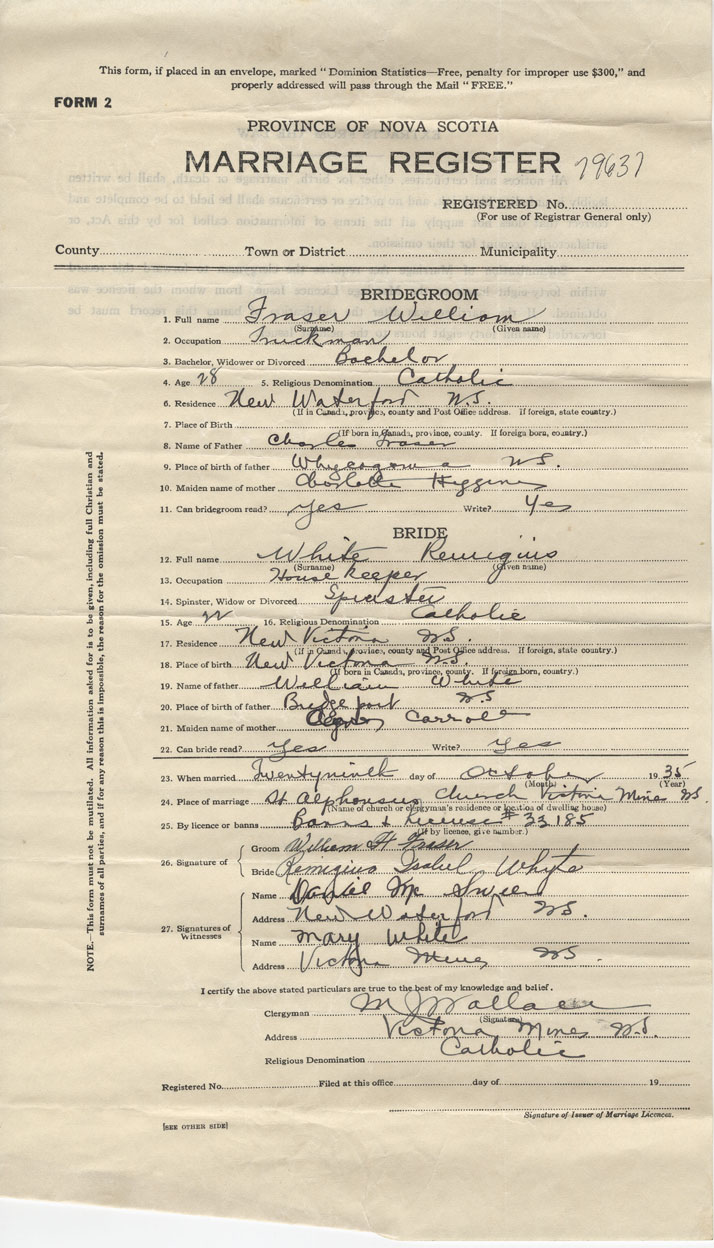 This form, if placed in an envelope, marked "Dominion Statistics—Free, penalty for improper use $300," and
properly addressed will pass through the Mail "FREE."
FORM 2
PROVINCE OF NOVA SCOTIA
MARRIAGE REGISTER 79637
REGISTERED No.
(For use of Registrar General only)
County Town or District Municipality
BRIDEGROOM
1. Full name Fraser William
(Surname) (Given name)
2. Occupation Truckman
3. Bachelor, Widower or Divorced Bachelor
4. Age 28 5. Religious Denomination Catholic
6. Residence New Waterford N.S.
(If in Canada, province, county and Post Office address. If foreign, state country.)
7. Place of Birth
(If born in Canada, province, county. If foreign born, country.)
8. Name of Father Charles Fraser
9. Place of birth of father Whycogoma NS.
10. Maiden name of mother Charlotte Higgins
11. Can bridegroom read? yes Write? Yes
BRIDE
12. Full name White Remigius
(Surname) (Given name)
13. Occupation House Keeper
14. Spinster, Widow or Divorced Spinster
15. Age 22 16. Religious Denomination Catholic
17. Residence New Victoria NS.
(If in Canada, province, county and Post Office address. If foreign, state country.)
18. Place of birth New Victoria N.S.
(If born in Canada, province, county. If foreign born, country.)
19. Name of father William White
20. Place of birth of father Bridgeport NS
21. Maiden name of mother Agnes Carroll
22. Can bride read? Yes Write? Yes
23. When married Twentyninth day of October 1935
(Month) (Year)
24. Place of marriage St Alphonsus Church Victoria Mine NS.
(Name of church or clergyman's residence or location of dwelling house)
25. By licence or banns Banns & License # 33185
(If by licence, give number.)
26. Signature of
Groom William H Fraser
Bride Remigius Isabel Whyte
27. Signatures of Witnesses
Name Daniel Mc
Address New Waterford NS.
Name Mary White
Address Victoria Mines NS.
I certify the above stated particulars are true to the best of my knowledge and belief.
Clergyman M J Wallace
(Signature)
Address Victoria Mines N.S.
Religious Denomination Catholic
Registered No. Filed at this office day of 19
Signature of Issuer of Marriage Licences.
[SEE OTHER SIDE]
NOTE.—This form must not be mutilated. All information asked for is to be given, including full Christian and
surnames of all parties, and if for any reason this is impossible, the reason for the omission must be stated.